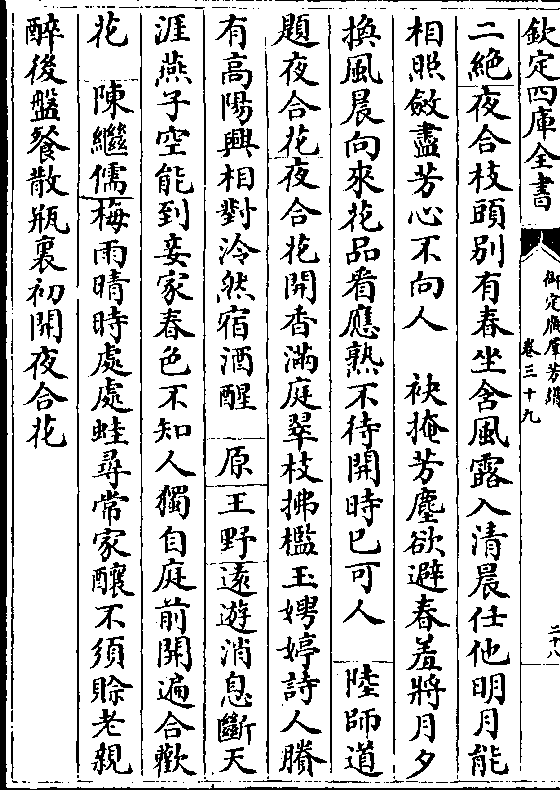 欽定四庫全書
御定佩文齋廣羣芳譜
卷三十九
二十八
二絶夜合枝頭别有春坐含風露入清晨任他明月能
相照斂盡芳心不向人　袂掩芳塵欲避春羞將月夕
換風晨向來花品看應熟不待開時已可人　陸師道
題夜合花夜合花開香滿庭翠枝拂檻玉娉婷詩人賸
有高陽興相對泠然宿酒醒　原王野遠遊消息斷天
涯燕子空能到妾家春色不知人獨自庭前開遍合歡
花　陳繼儒梅雨晴時處處蛙尋常家釀不須賒老親
醉後盤餐散瓶裏初開夜合花